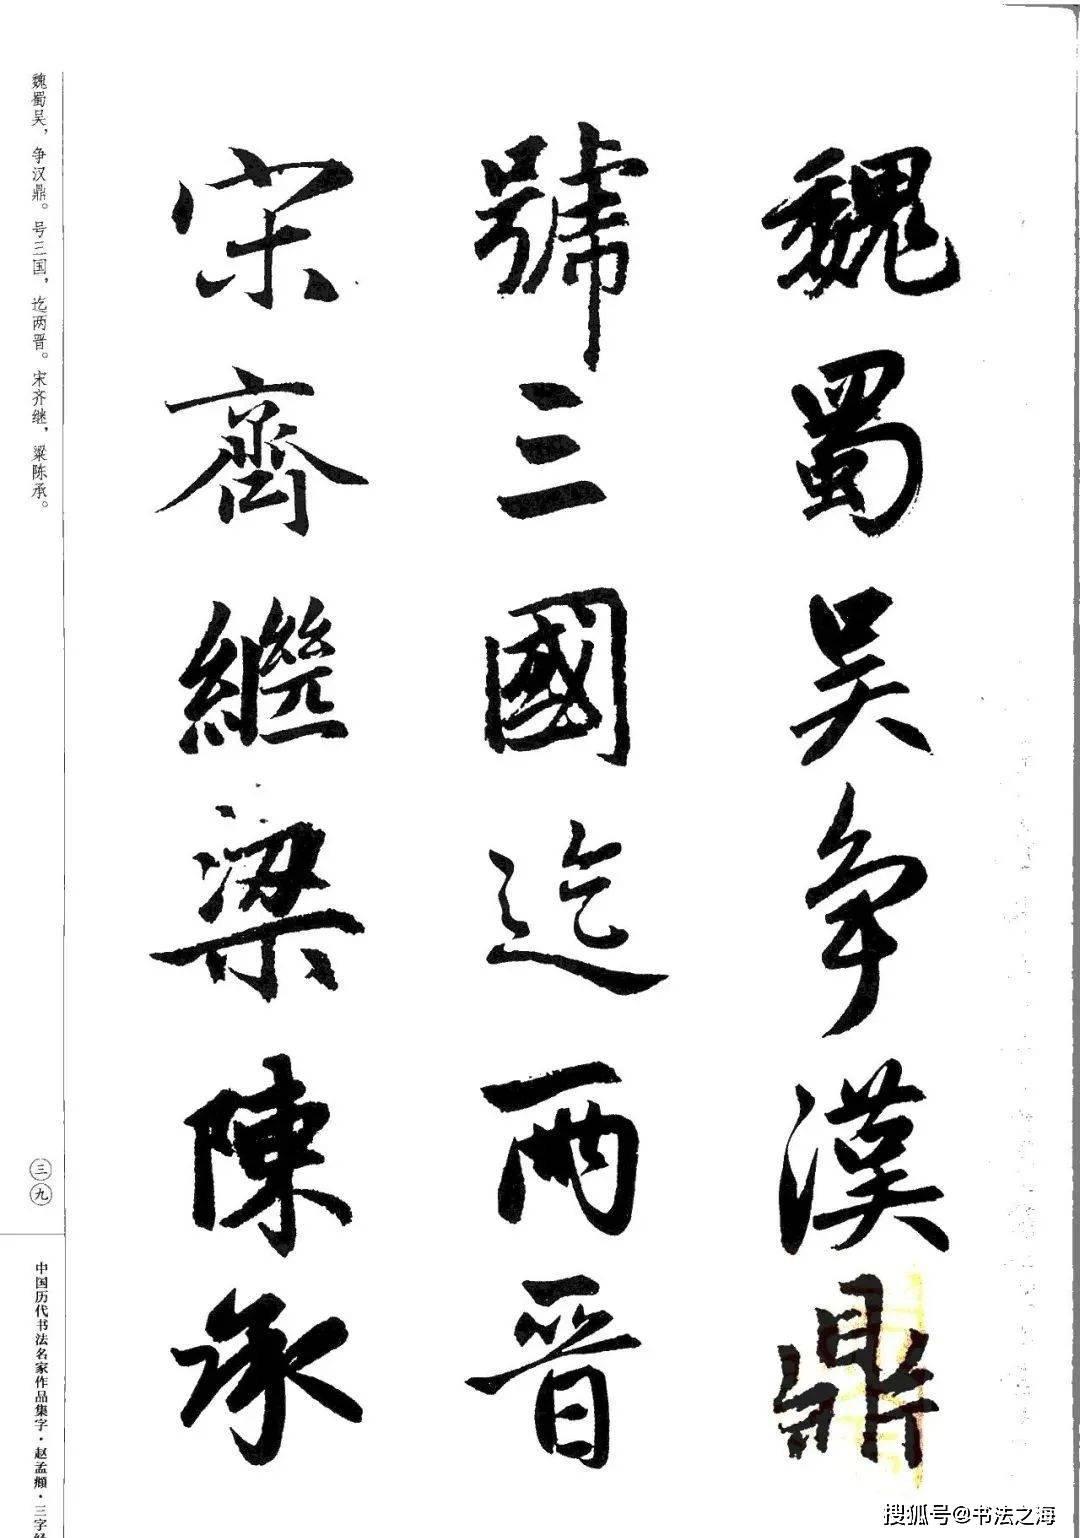 魏蜀吴争漢鼎
號三國迄兩晉
宋齊繼梁陳承
魏蜀吴，争汉鼎。号三国，迄两晋。宋齐继，粱陈承。
三九
中国历代书法名家作品集字·赵孟頫·三字经
搜狐号@书法之海